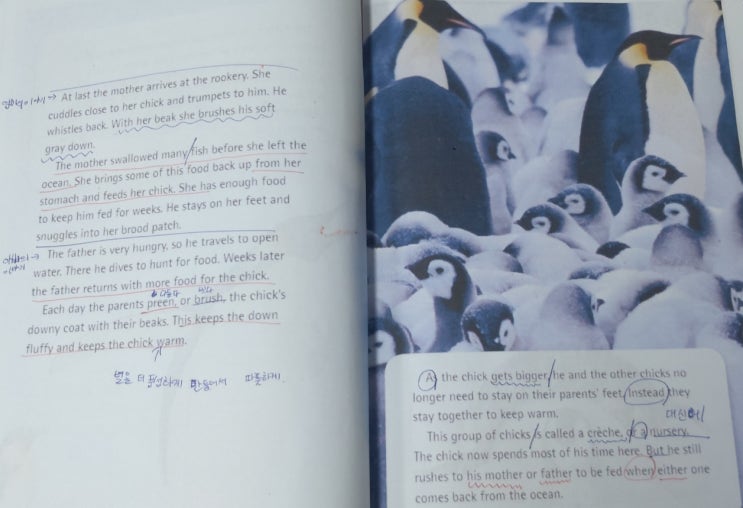 At last the mother arrives at the rookery. She
cuddles close to her chick and trumpets to him. He
whistles back. With her beak she brushes his soft
gray down.
The mother swallowed many fish before she left the
ocean. She brings some of this food back up from her
stomach and feeds her chick. She has enough food
to keep him fed for weeks. He stays on her feet and
snuggles into her brood patch.
The father is very hungry, so he travels to open
water. There he dives to hunt for food. Weeks later
the father returns with more food for the chick.
Each day the parents preen, or brush, the chick's
downy coat with their beaks. This keeps the down
fluffy and keeps the chick warm.
따뜻하게.
As the chick gets bigger, he and the other chicks no
longer need to stay on their parents' feet. Instead they
stay together to keep warm.
대신에
This group of chicks is called a crèche, or a nursery.
The chick now spends most of his time here. But he still
rushes to his mother or father to be fed when either one
comes back from the ocean.